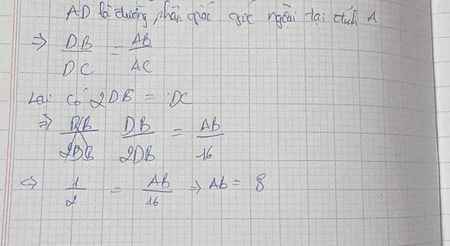 AD là đường phân giác góc ngoài tại đỉnh A
=> DB/DC = AB/AC
Lại có 2DB = DC
=> DB/2DB = AB/16
<=> 1/2 = AB/16 => Ab = 8